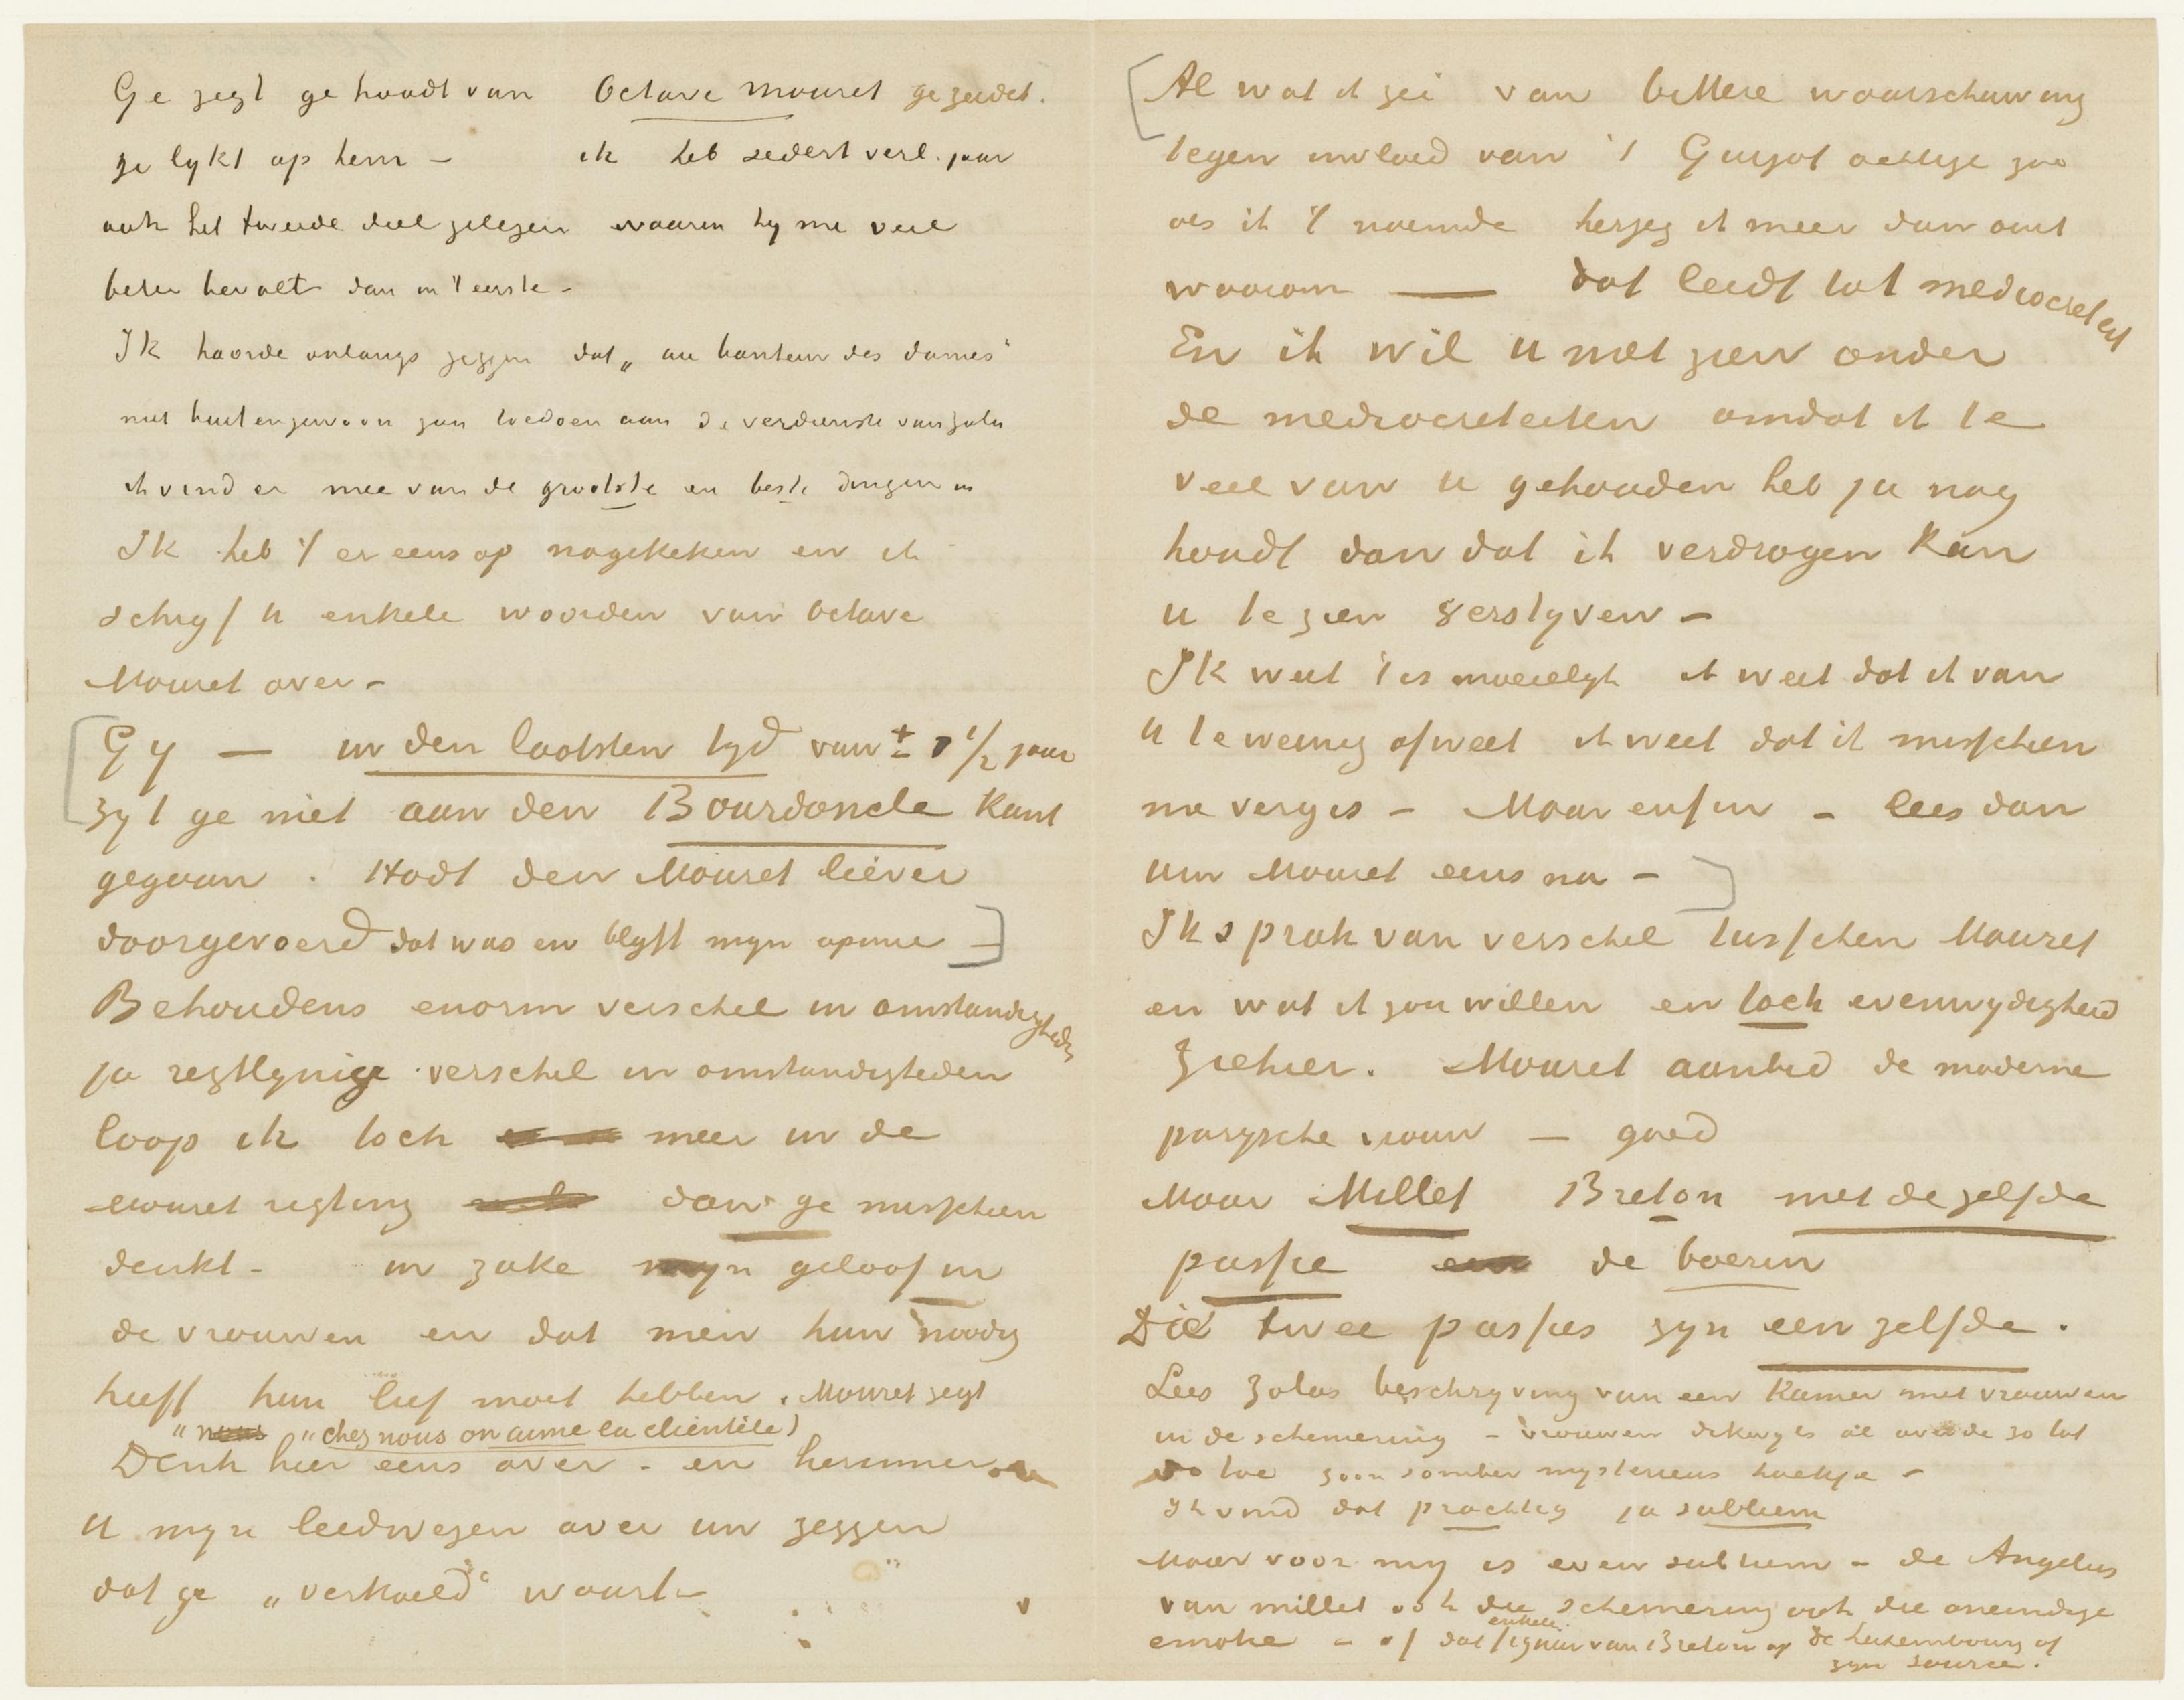 Ge zegt ge houdt van Octave Mouret gezeided.
ge lykt op hem — ik heb sedert verl. jaar
ook het tweede deel gelezen waarin hy me veel
beter bevalt dan in 't eerste —
Ik hoorde onlangs zeggen dat „au bonheur des dames"
niet buitengewoon zou toedoen aan de verdienste van Zola
ik vind er mee van de grootste en beste dingen in
Ik heb 't er eens op nagekeken en ik
schryf u enkele woorden van Octave
Mouret over —
Gy — in den laatsten tyd van ± 1 1/2 jaar
zyt ge niet aan den Bourdoncle kant
gegaan. Hadt den Mouret liever
doorgevoerd dat was en blyft myn opinie —
Behoudens enorm verschil in omstandigheden
ja regtlynige verschil in omstandigheden
loop ik toch meer in de
Mouret regting dan ge misschien
denkt — in zake myn geloof in
de vrouwen en dat men hun noodig
heeft hun lief moet hebben. Mouret zegt
„nous „chez nous on aime la clientèle)
Denk hier eens over — en herinner
u myn leedwezen over uw zeggen
dat ge „verkoeld" waart —
Al wat ik zei van bittere waarschuwing
tegen invloed van 't Goupil achtige zoo
als ik 't noemde herzeg ik meer dan ooit
waarom — dat leidt tot mediocreteit
En ik wil u niet zien onder
de mediocreteiten omdat ik te
veel van u gehouden heb ja nog
houdt dan dat ik verdragen kan
u te zien verstyven —
Ik weet 't is moeielyk ik weet dat ik van
u te weinig afweet ik weet dat ik misschien
me vergis — Maar enfin — lees dan
uw Mouret eens na —
Ik sprak van verschil tusschen Mouret
en wat ik zou willen en toch evenwydigheid
Ziehier. Mouret aanbid de moderne
parysche vrouw — goed
Maar Millet Breton met dezelfde
passie de boerin
Die twee passies zyn een zelfde.
Lees Zolas beschryving van een kamer met vrouwen
in de schemering — vrouwen dikwyls al over de 30 tot
50 toe zoon somber mysterieus hoekje —
Ik vind dat prachtig ja subliem
Maar voor my is even subliem — de Angelus
van Millet ook die schemering ook die oneindige
emotie — of dat enkele figuur van Breton op de Luxembourg of
zyn source.